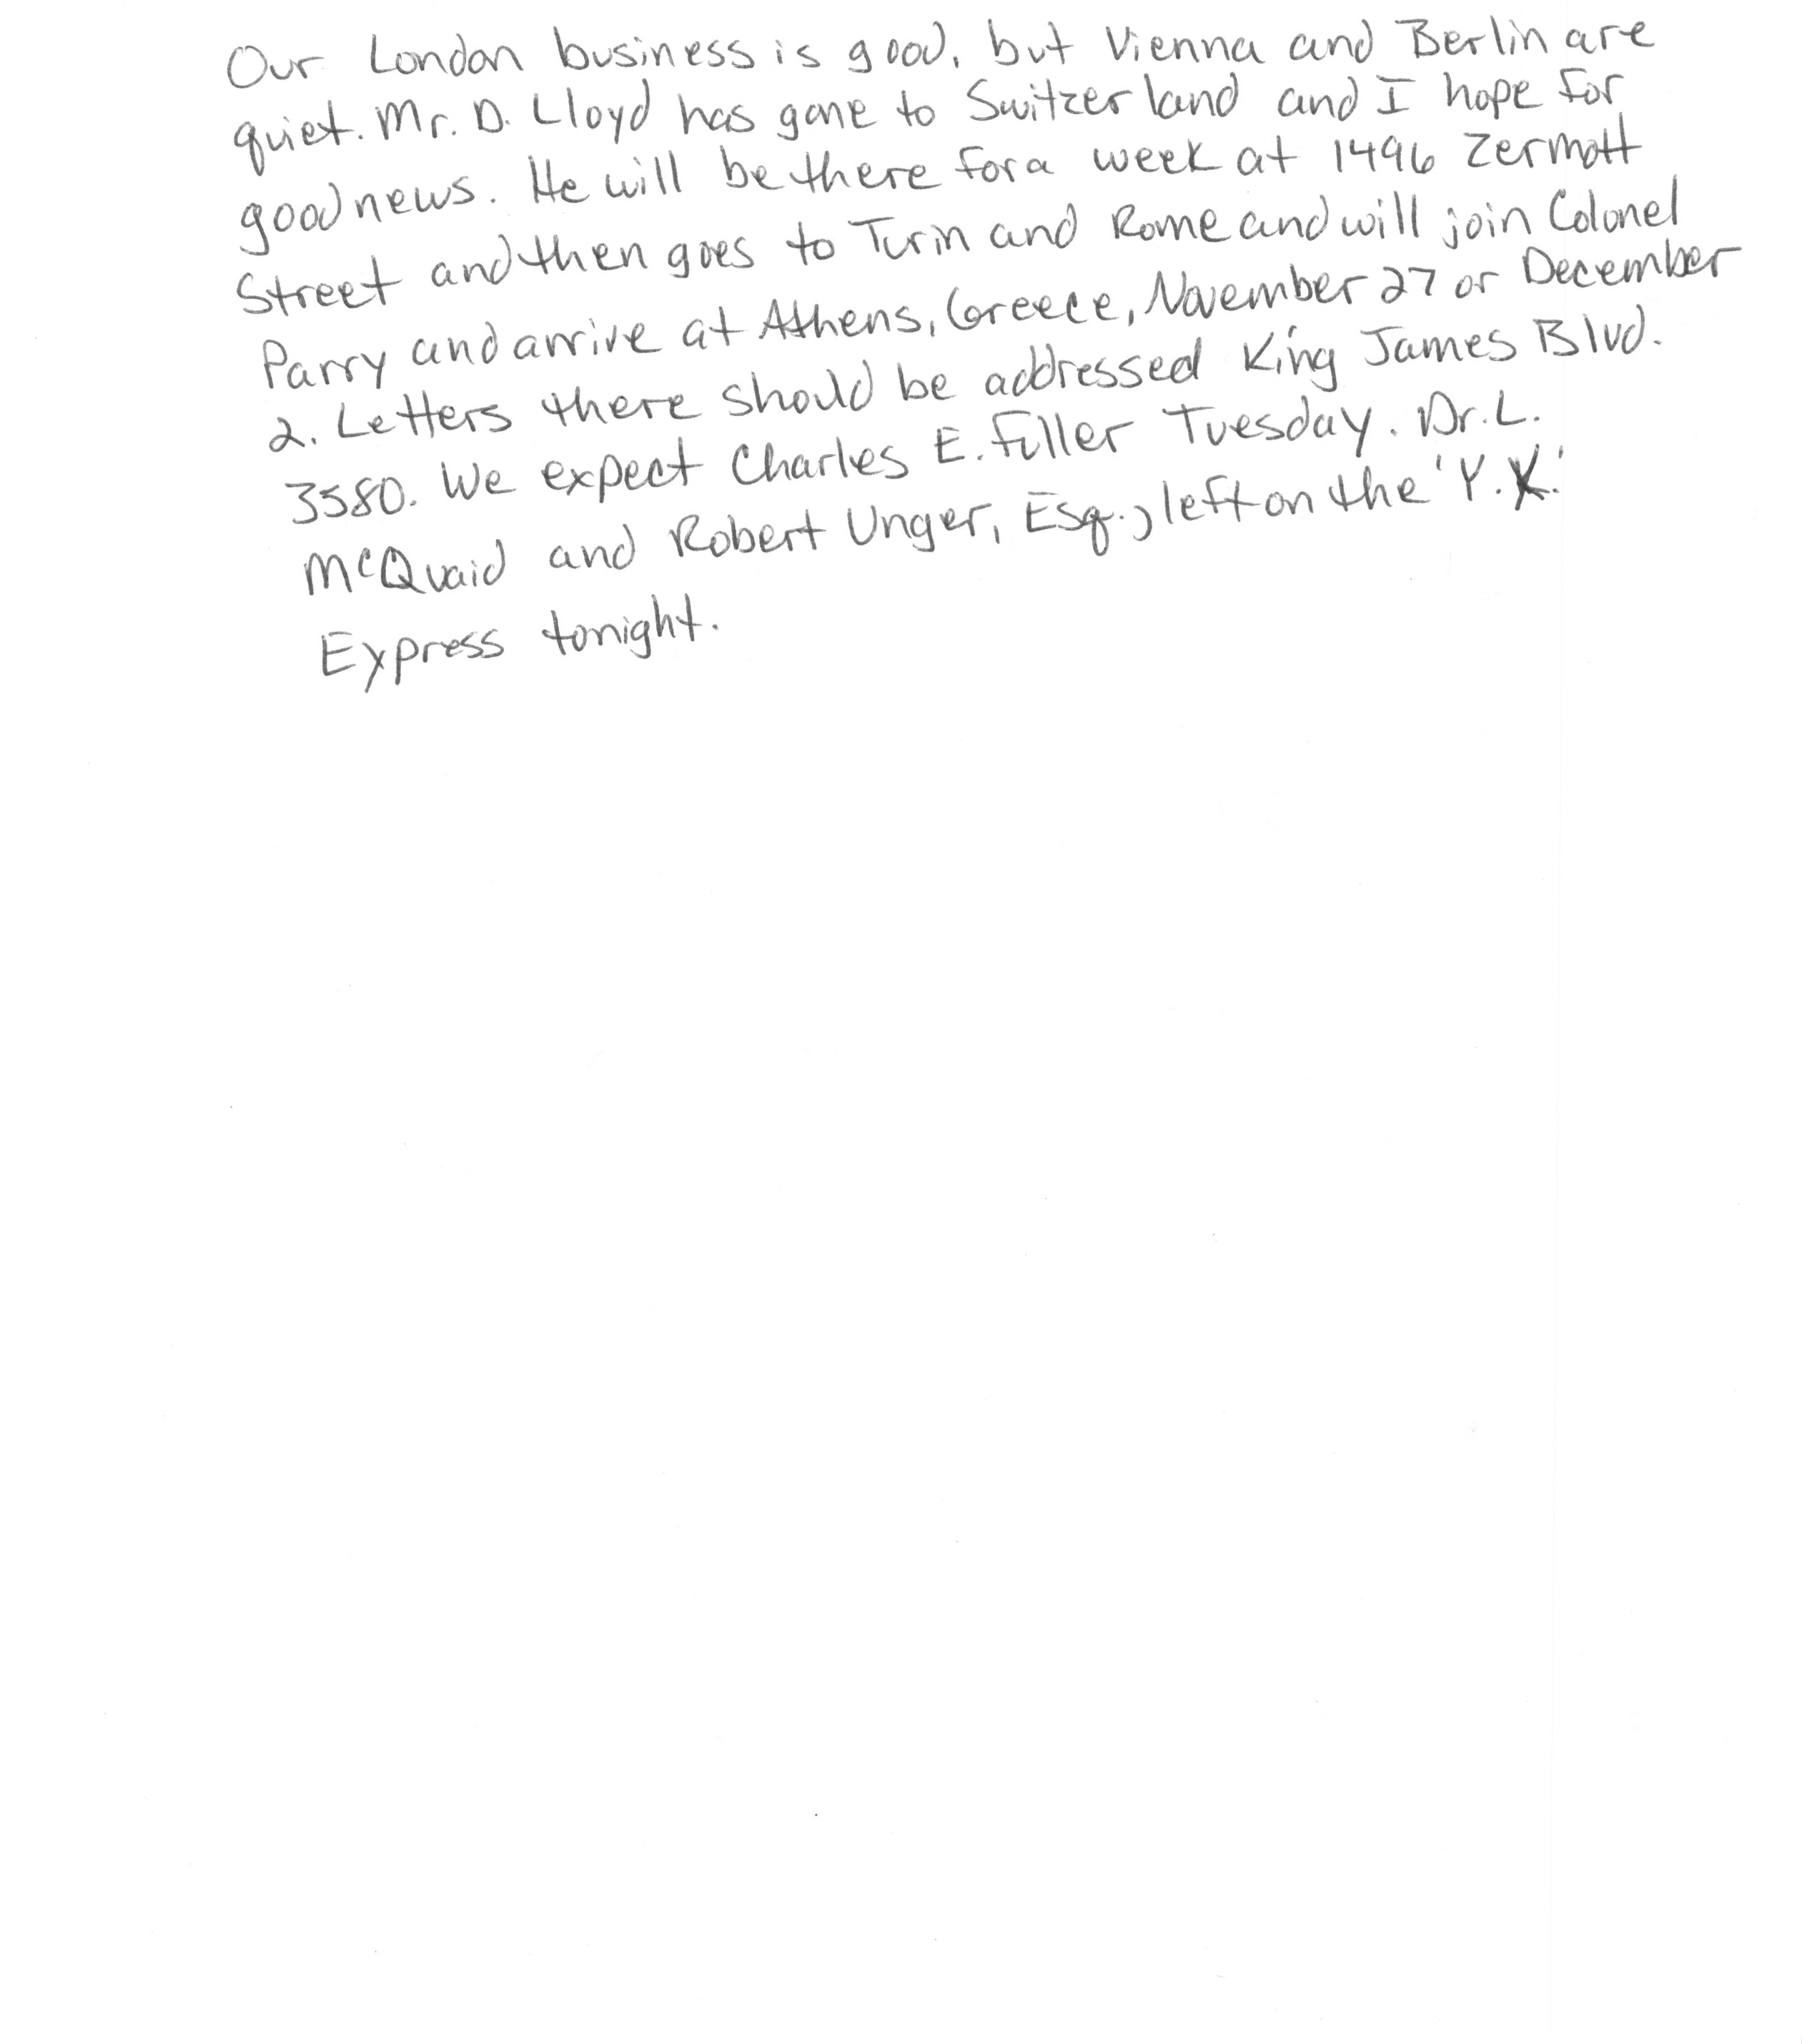 Our London business is good, but Vienna and Berlin are
quiet. Mr. D. Lloyd has gone to Switzerland and I hope for
good news. He will be there for a week at 1496 Zermott
Street and then goes to Turin and Rome and will join Colonel
Parry and arrive at Athens, Greece, November 27 or December
2. Letters there should be addressed King James Blvd.
3580. We expect Charles E. Fuller Tuesday. Dr. L.
McQuaid and Robert Unger, Esq., left on the 'Y.X.'
Express tonight.